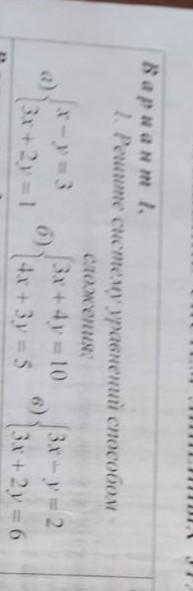 Вариант 1.
1. Решите систему уравнений способом
сложения:
а) { x − y = 3 б) { 3x + 4y = 10 в) { 3x − y = 2
3x + 2y = 1 4x + 3y = 5 3x + 2y = 6